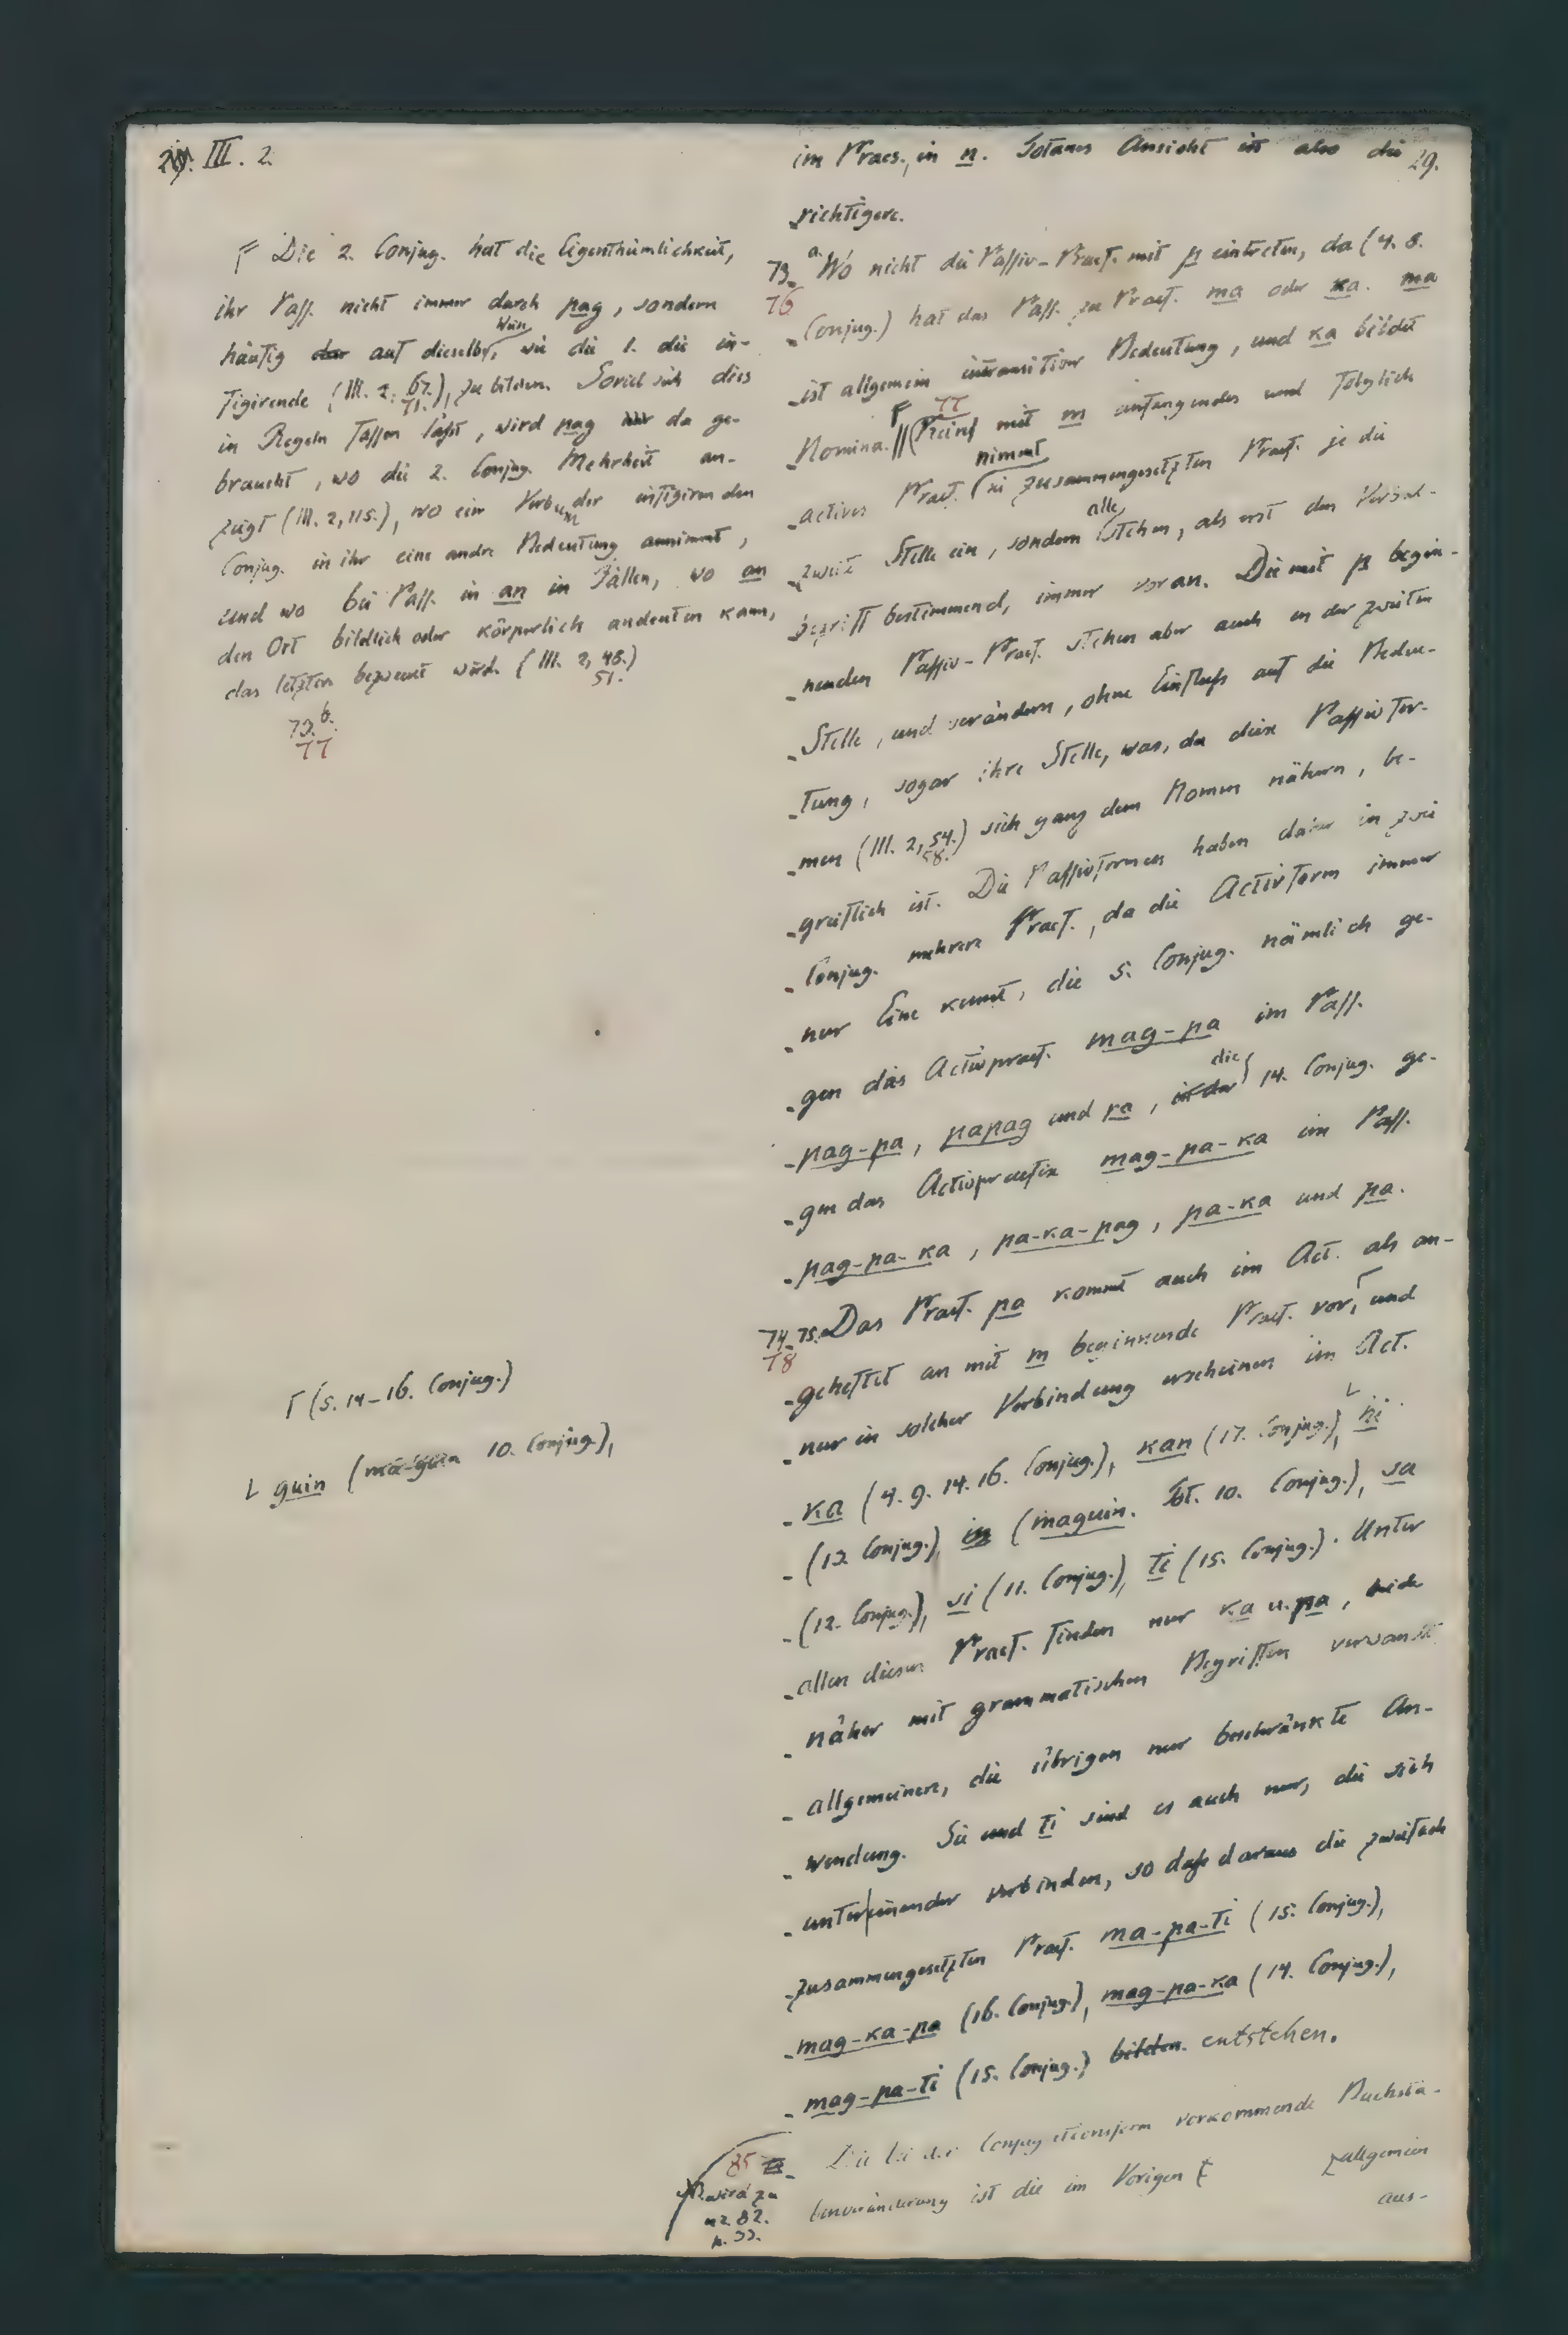 III. 2.
29.
Die 2. Conjug. hat die Eigenthümlichkeit,
ihr Pass. nicht immer durch pag, sondern
häufig auf dieselbe Weise, wie die 1. die in-
figirende (III. 2, 67. 71.), zu bilden. Soviel sich dies
in Regeln fassen läßt, wird pag da ge-
braucht, wo die 2. Conjug. Mehrheit an-
zeigt (III. 2, 115.), wo ein Verbum der infigirenden
Conjug. in ihr eine andre Bedeutung annimmt,
und wo bei Pass. in an in Fällen, wo an
den Ort bildlich oder körperlich andeuten kann,
das letztere bezweckt wird. (III. 2, 48.)
51.
73. b.
77
Γ (5. 14-16. Conjug.)
L guin (ma-guin 10. Conjug.),
im Praes., in n. Totanes Ansicht ist also die
richtigere.
73. a. Wo nicht die Passiv-Praef. mit p eintreten, da (4. 8.
76
Conjug.) hat das Pass. zu Praef. ma oder ka. ma
ist allgemein intransitiver Bedeutung, und ka bildet
Nomina. || 77 (Keines mit m anfangendes und folglich
actives Praef. nimmt in zusammengesetzten Praef. je die
zweite Stelle ein, sondern alle stehen, als erst den Verbal-
begriff bestimmend, immer voran. Die mit p begin-
nenden Passiv-Praef. stehen aber auch an der zweiten
Stelle, und verändern, ohne Einfluß auf die Bedeu-
tung, sogar ihre Stelle, was, da diese Passivfor-
men (III. 2, 54.) sich ganz dem Nomen nähern, be-
58.
greiflich ist. Die Passivformen haben daher in zwei
Conjug. mehrere Praef., da die Activform immer
nur Eine kennt, die 5. Conjug. nämlich ge-
gen das Activpraef. mag-pa im Pass.
pag-pa, papag und pa, in der die 14. Conjug. ge-
gen das Activpraefix mag-pa-ka im Pass.
pag-pa-ka, pa-ka-pag, pa-ka und pa.
74. 75. Das Praef. pa kommt auch im Act. als an-
78
geheftet an mit m beginnende Praef. vor, Γ und
nur in solcher Verbindung erscheinen im Act.
ka (4. 9. 14. 16. Conjug.), kan (17. Conjug.), L hi
(13. Conjug.), in (maguin. Tot. 10. Conjug.), sa
(12. Conjug.), si (11. Conjug.), ti (15. Conjug.). Unter
allen diesen Praef. finden nur ka u. pa, beide
näher mit grammatischen Begriffen verwandt
allgemeinere, die übrigen nur beschränkte An-
wendung. Sie und ti sind es auch nur, die sich
untereinander verbinden, so daß daraus die zweifach
zusammengesetzten Praef. ma-pa-ti (15. Conjug.),
mag-ka-pa (16. Conjug.), mag-pa-ka (14. Conjug.),
mag-pa-ti (15. Conjug.) bilden. entstehen.
85
wird zu
nr. 82.
p. 33.
Die bei der Conjugationsform vorkommende Buchsta-
benveränderung ist die im Vorigen allgemein
aus-